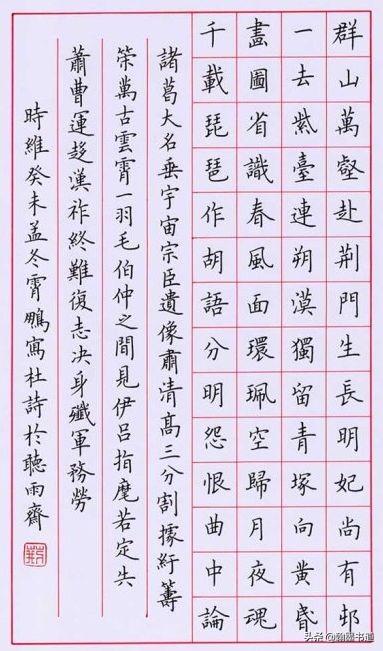 群山萬壑赴荆門生長明妃尚有邨
一去紫臺連朔漠獨留青塚向黄昏
畫圖省識春風面環珮空歸月夜魂
千載琵琶作胡語分明怨恨曲中論
諸葛大名垂宇宙宗臣遺像肅清高三分割據紆籌
策萬古雲霄一羽毛伯仲之間見伊吕指麾若定失
蕭曹運移漢祚終難復志决身殲軍務勞
時維癸未孟冬霄鵬寫杜詩於聽雨齋
头条 @翰墨书道